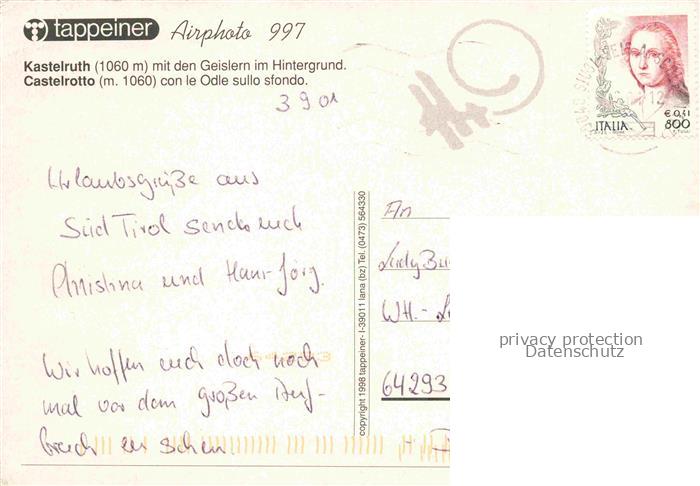 tappeiner Airphoto 997
Kastelruth (1060 m) mit den Geislern im Hintergrund.
Castelrotto (m. 1060) con le Odle sullo sfondo.
3 9 01
ITALIA
€ 0,41
800
Urlaubsgrüße aus
Süd Tirol senden euch
Christina und Hans-Jörg.
Wir hoffen euch doch noch
mal vor dem großen Auf-
bruch zu sehen.
copyright 1998 tappeiner- I-39011 lana (bz) Tel. (0473) 564330
An
64293
privacy protection
Datenschutz